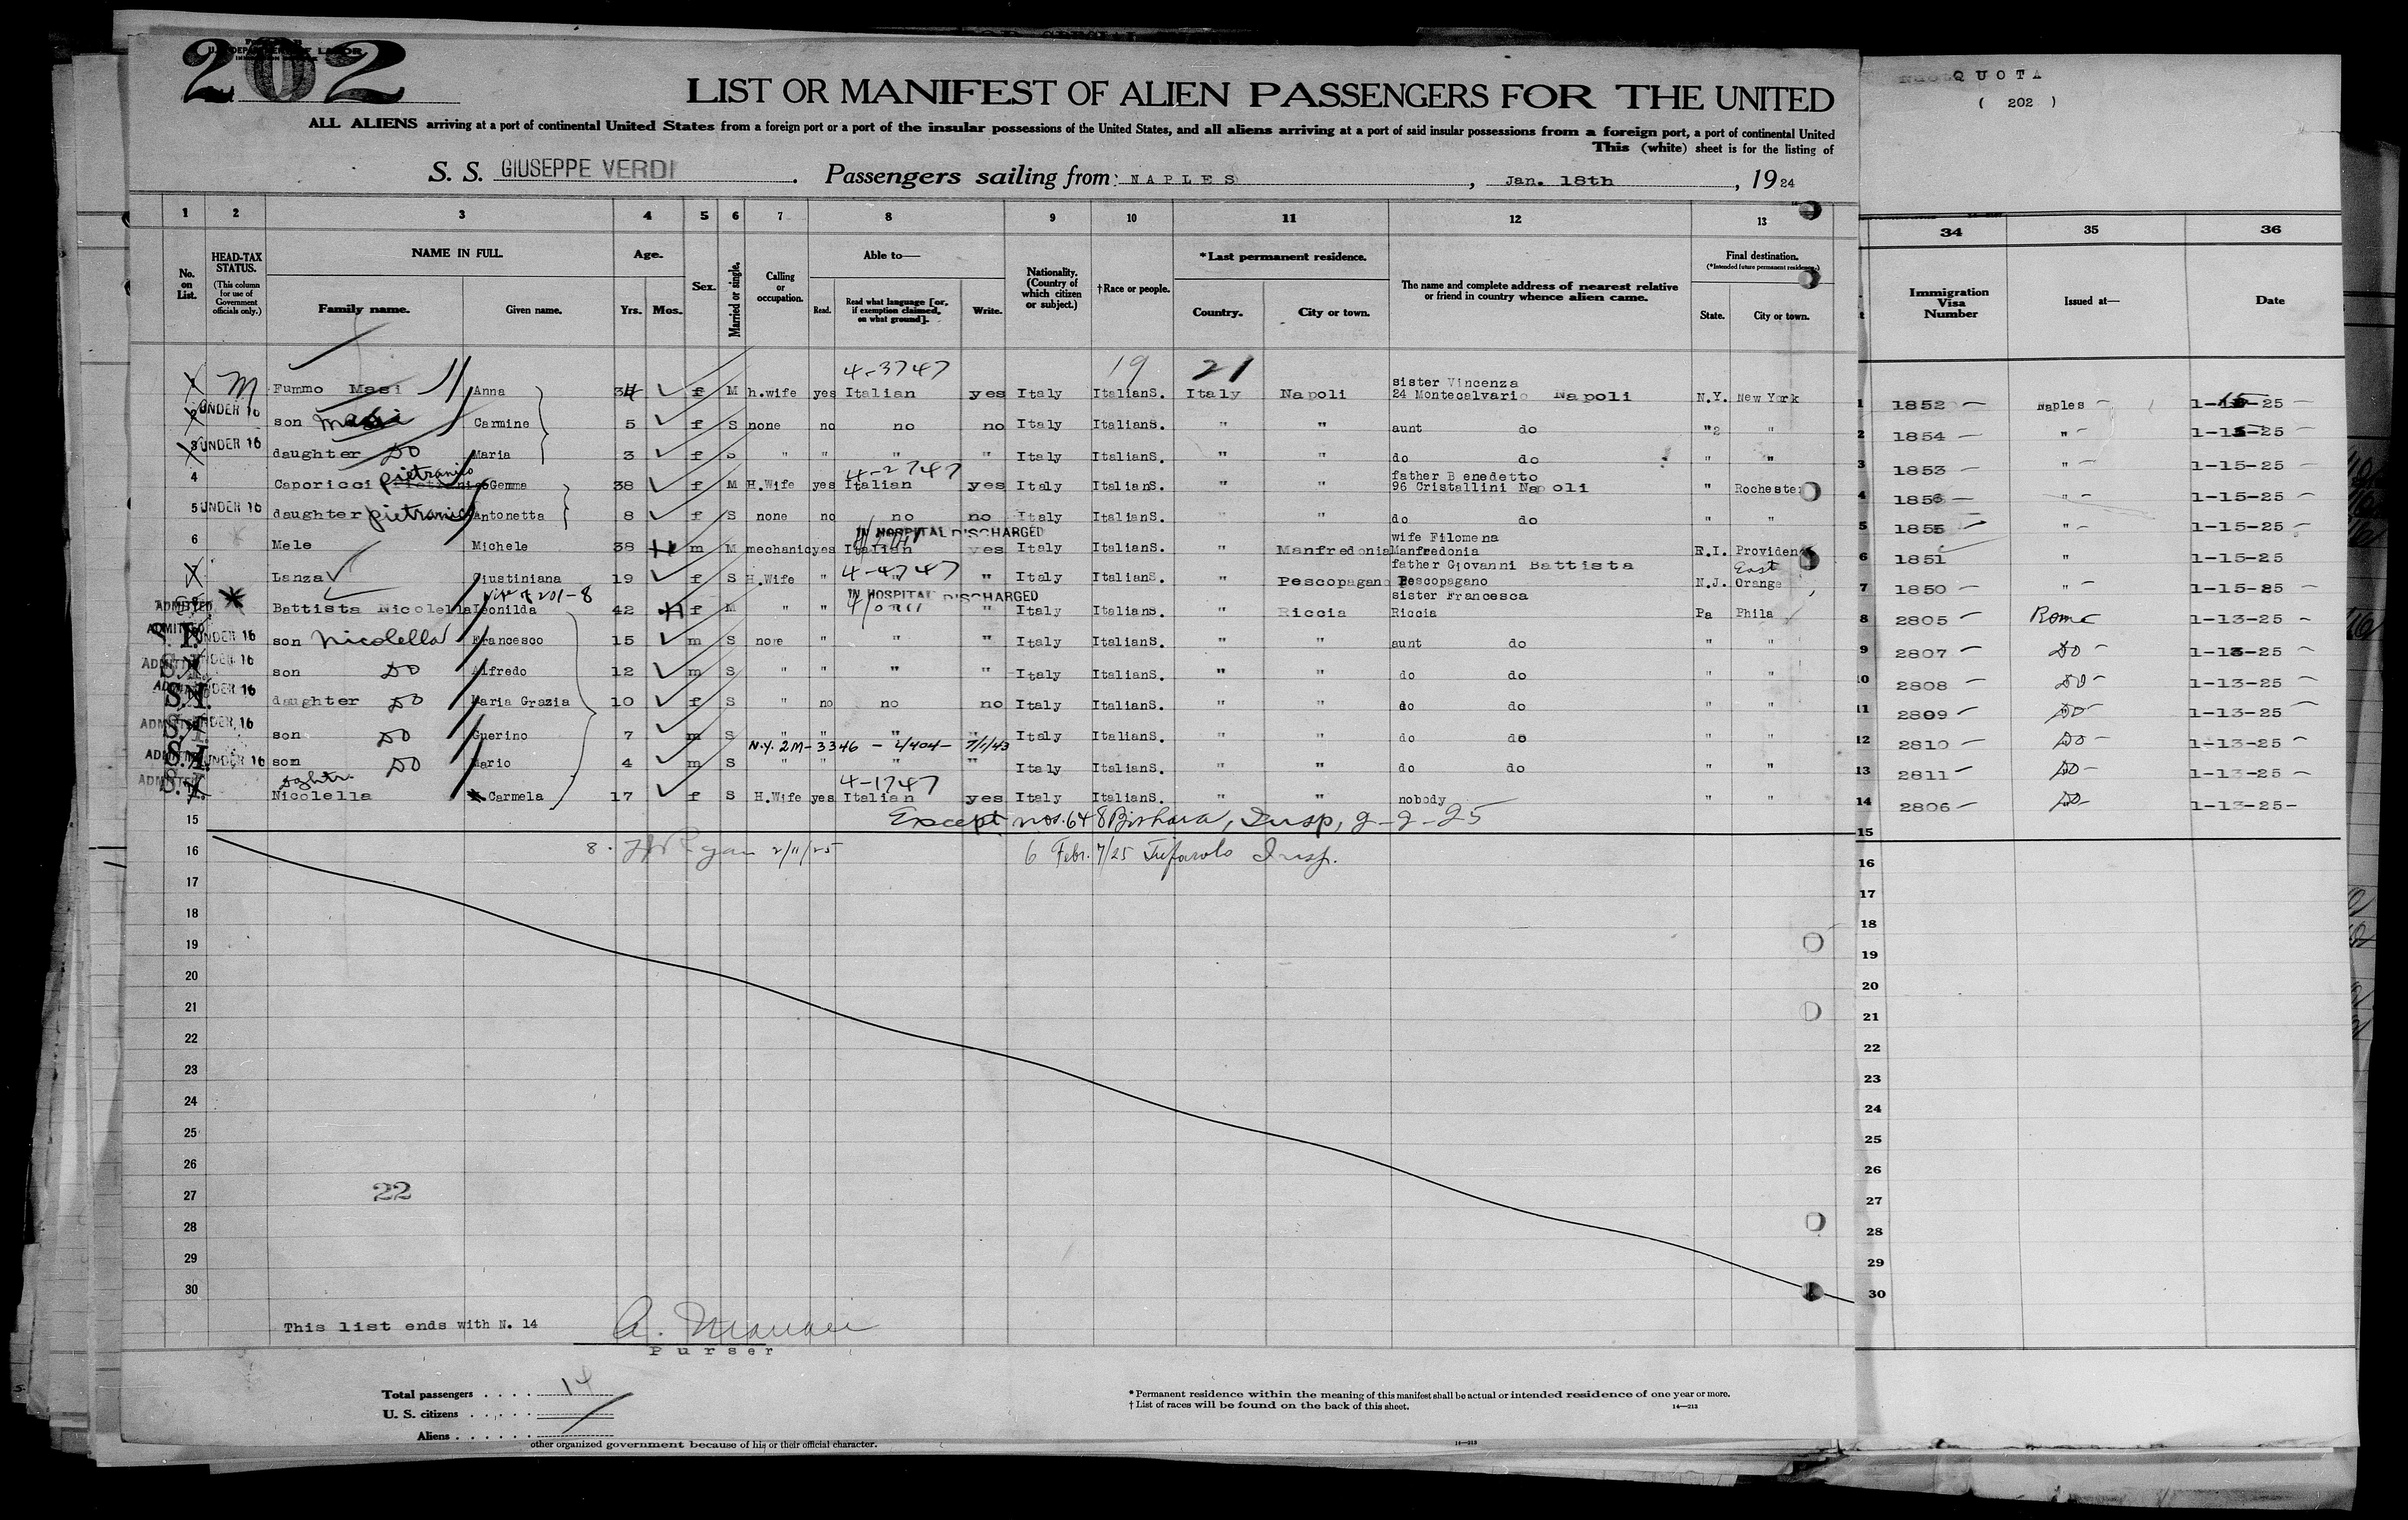 202
U.S. DEPARTMENT OF LABOR
LIST OR MANIFEST OF ALIEN PASSENGERS FOR THE UNITED
ALL ALIENS arriving at a port of continental United States from a foreign port or a port of the insular possessions of the United States, and all aliens arriving at a port of said insular possessions from a foreign port, a port of continental United
This (white) sheet is for the listing of
S. S. GIUSEPPE VERDI. Passengers sailing from: NAPLES, Jan. 18th, 1924
QUOTA
( 202 )
1 2 3 4 5 6 7 8 9 10 11 12 13 34 35 36
No. on List. HEAD-TAX STATUS. (This column for use of Government officials only.) NAME IN FULL. Family name. Given name. Age. Yrs. Mos. Sex. Married or single. Calling or occupation. Able to— Read. Read what language [or, if exemption claimed, on what ground]. Write. Nationality. (Country of which citizen or subject.) †Race or people. *Last permanent residence. Country. City or town. The name and complete address of nearest relative or friend in country whence alien came. Final destination. (*Intended future permanent residence.) State. City or town. Immigration Visa Number Issued at— Date
4-3747 19 21
M Fummo Masi Anna 34 f M h.wife yes Italian yes Italy ItalianS. Italy Napoli sister Vincenza 24 Montecalvario Napoli N.Y. New York 1 1852 Naples 1-15-25
2 UNDER 16 son Masi Carmine 5 f S none no no no Italy ItalianS. " " aunt do " " 2 1854 " 1-15-25
3 UNDER 16 daughter DO Maria 3 f S " " " " Italy ItalianS. " " do do " " 3 1853 " 1-15-25
4-2747
4 Caporicci Pietranico Gemma 38 f M H.Wife yes Italian yes Italy ItalianS. " " father Benedetto 96 Cristallini Napoli " Rochester 4 1856 " 1-15-25
5 UNDER 16 daughter Antonetta 8 f S none no no no Italy ItalianS. " " do do " " 5 1855 " 1-15-25
IN HOSPITAL DISCHARGED
6 Mele Michele 38 m M mechanic yes Italian yes Italy ItalianS. " Manfredonia wife Filomena Manfredonia R.I. Providen 6 1851 " 1-15-25
4-4747
7 Lanza Giustiniana 19 f S H.Wife " " " Italy ItalianS. " Pescopagano father Giovanni Battista Pescopagano N.J. East Orange 7 1850 " 1-15-25
wife of 201-8
IN HOSPITAL DISCHARGED
ADMITTED Battista Nicolella Leonilda 42 f M " " " Italy ItalianS. " Riccia sister Francesca Riccia Pa Phila 8 2805 Rome 1-13-25
ADMITTED UNDER 16 son Nicolella Francesco 15 m S none " " " Italy ItalianS. " " aunt do " " 9 2807 DO 1-13-25
ADMITTED UNDER 16 son DO Alfredo 12 m S " " " " Italy ItalianS. " " do do " " 10 2808 DO 1-13-25
S.I. UNDER 16 daughter DO Maria Grazia 10 f S " no no no Italy ItalianS. " " do do " " 11 2809 DO 1-13-25
ADMITTED UNDER 16 son DO Guerino 7 m S " " " Italy ItalianS. " " do do " " 12 2810 DO 1-13-25
N.Y. 2M-3346 - 2/404 - 7/1/43
ADMITTED S.I. UNDER 16 son DO Mario 4 m S " " " Italy ItalianS. " " do do " " 13 2811 DO 1-13-25
4-1747
ADMITTED S.I. dghtr. Nicolella Carmela 17 f S H.Wife yes Italian yes Italy ItalianS. " " nobody " " 14 2806 DO 1-13-25
15 Except nos. 6 & 8 Bishara, Insp, 2-2-25 15
16 8. Ryan 2/11/25 6 Febr. 7/25 Insp. 16
17 17
18 18
19 19
20 20
21 21
22 22
23 23
24 24
25 25
26 26
27 22 27
28 28
29 29
30 30
This list ends with N. 14
Purser
Total passengers . . . . 14
U. S. citizens . . . . .
Aliens . . . . . .
*Permanent residence within the meaning of this manifest shall be actual or intended residence of one year or more.
†List of races will be found on the back of this sheet.
14—213
other organized government because of his or their official character.
14—213